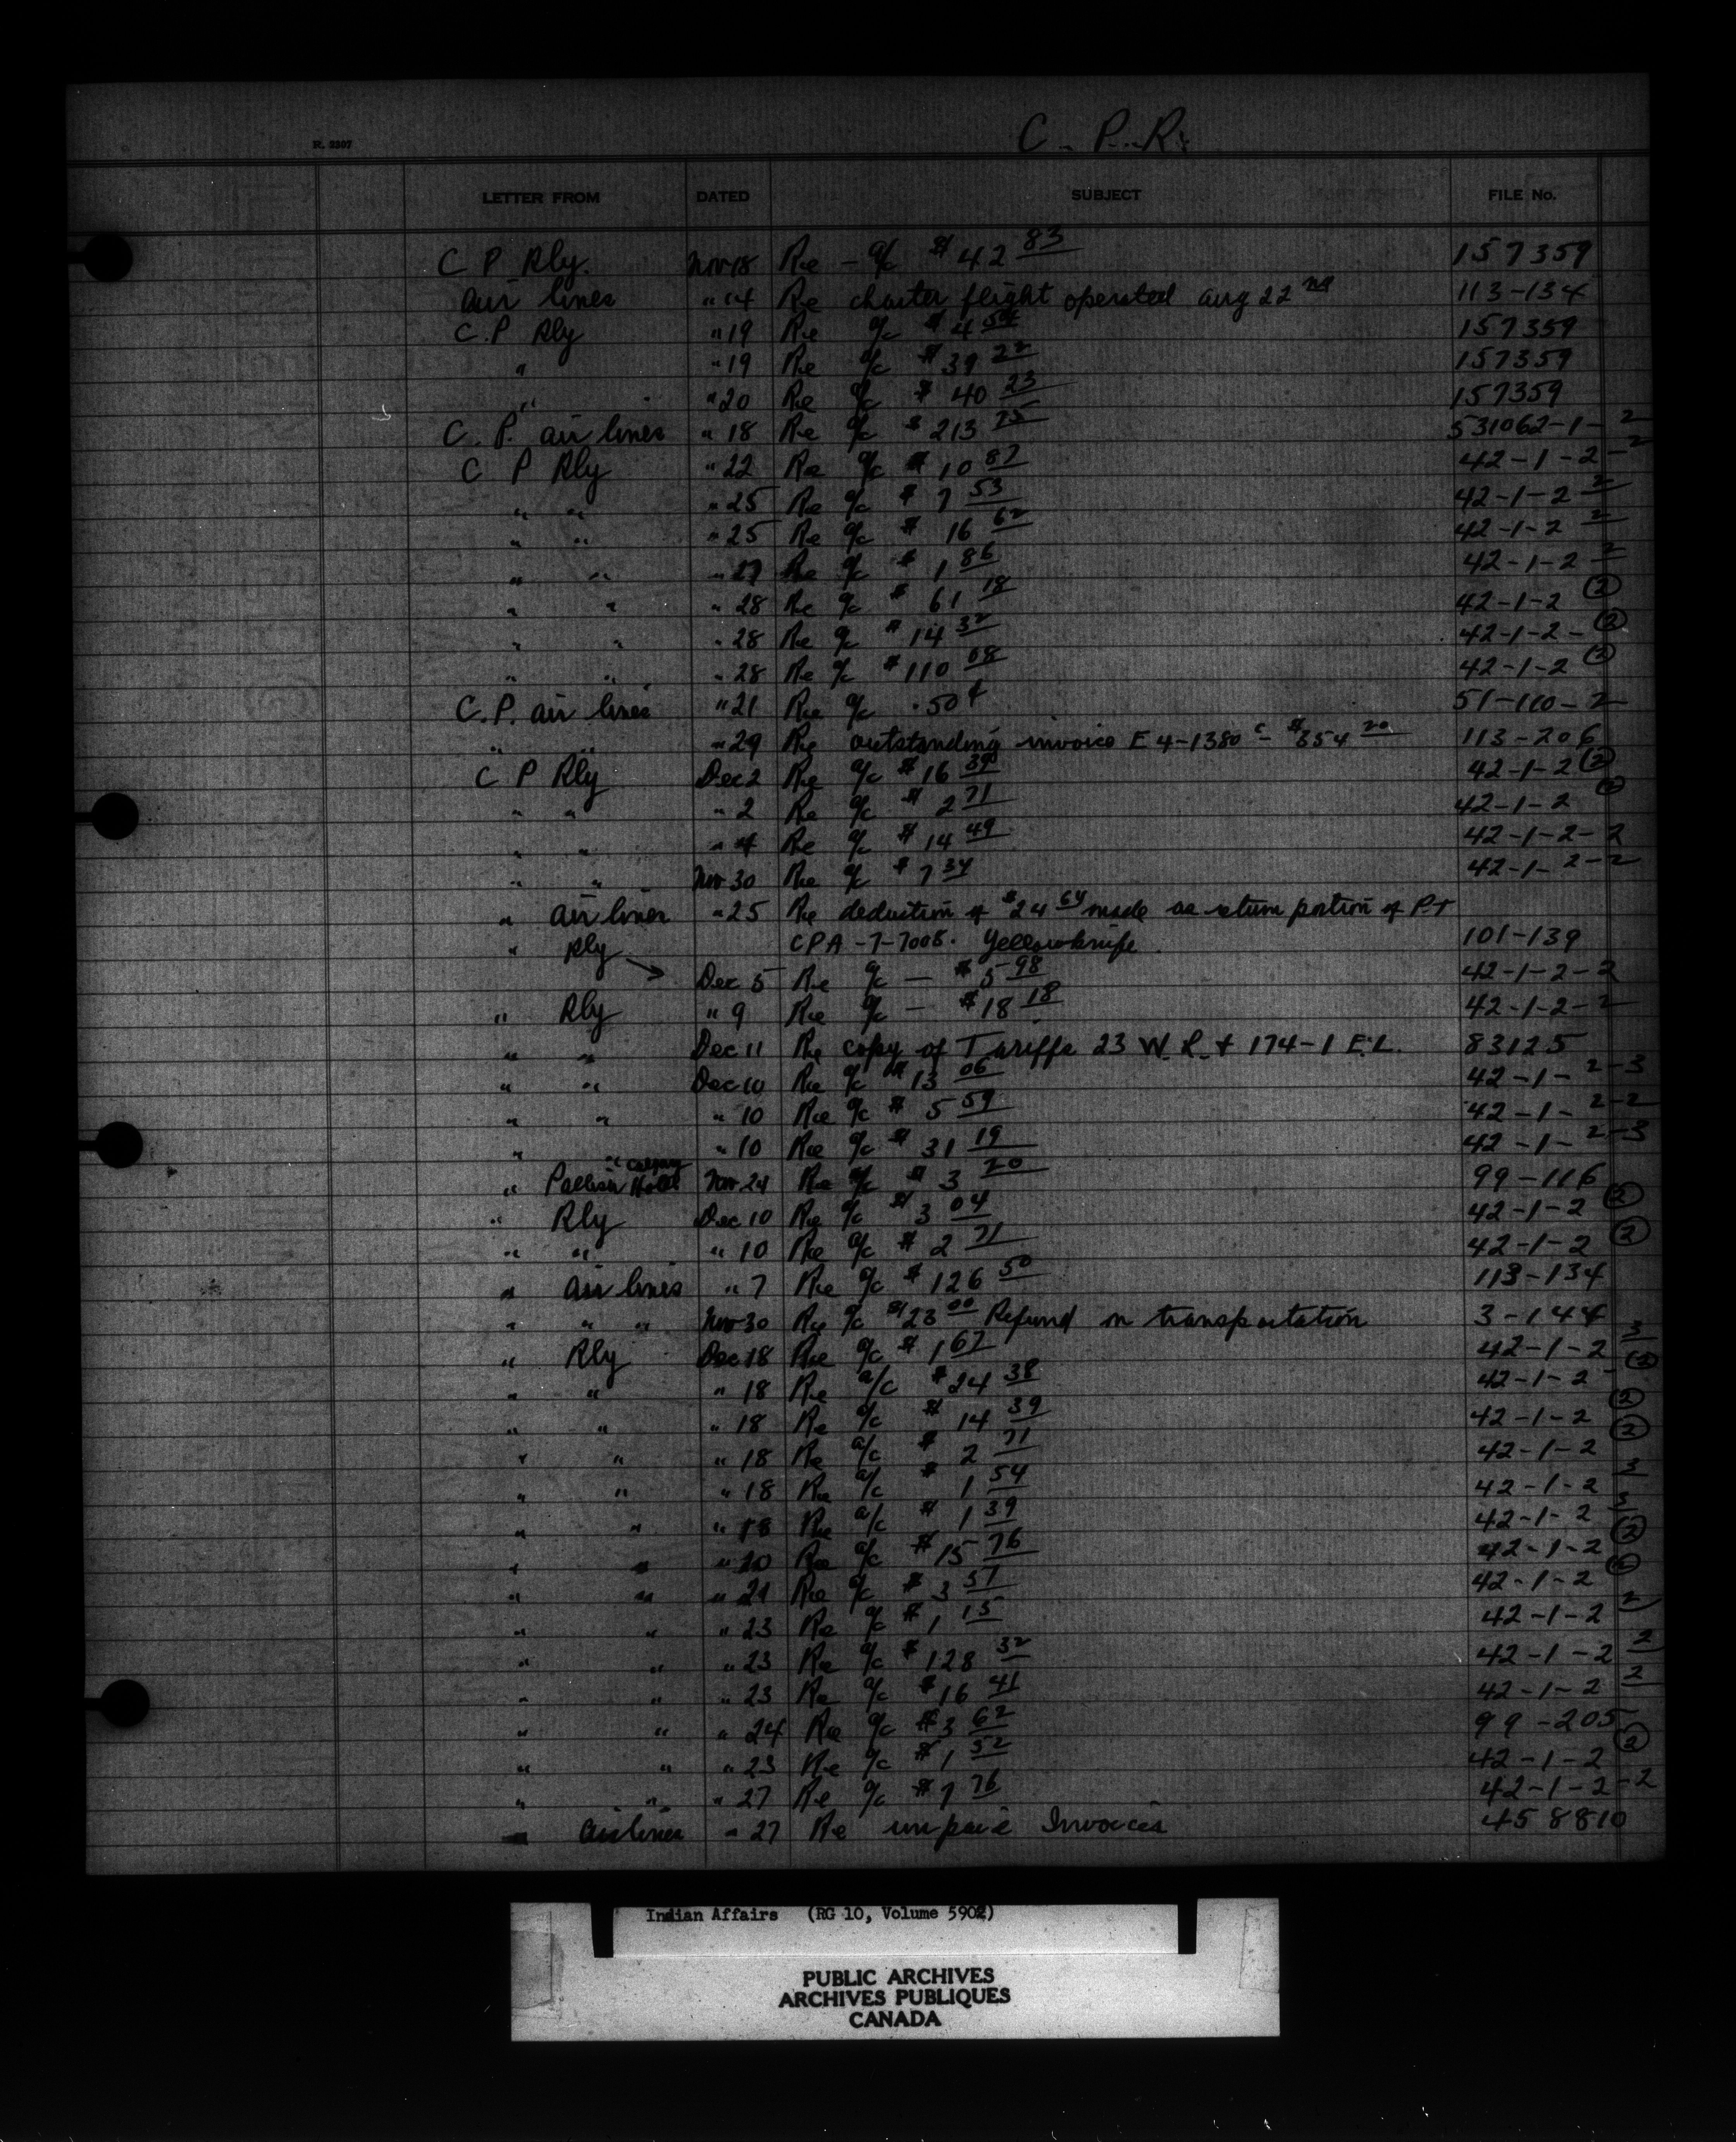 R. 2307
C.P.R.
LETTER FROM DATED SUBJECT FILE No.
C P Rly. Nov 18 Re - a/c $42 83 157359
Air lines " 14 Re charter flight operated Aug 22 nd 113-134
C.P Rly " 19 Re a/c $4 54 157359
" " 19 Re a/c $39 22 157359
" " 20 Re a/c $40 23 157359
C.P. Air lines " 18 Re a/c $213 75 531062-1-2
C P Rly " 22 Re a/c $10 87 42-1-2-2
" " " 25 Re a/c $7 53 42-1-2 2
" " " 25 Re a/c $16 62 42-1-2 2
" " " 27 Re a/c $1 86 42-1-2 2
" " " 28 Re a/c $61 18 42-1-2 (2)
" " " 28 Re a/c $14 32 42-1-2-(2)
" " " 28 Re a/c $110 08 42-1-2 (2)
C.P. Air lines " 21 Re a/c .50¢ 51-110-2
" " " 29 Re outstanding invoice E4-1380 c - $854 20 113-206
C P Rly Dec 2 Re a/c $16 39 42-1-2 (2)
" " " 2 Re a/c $2 71 42-1-2 (2)
" " " 4 Re a/c $14 49 42-1-2-2
" " Nov 30 Re a/c $7 34 42-1-2-2
" Air lines " 25 Re deduction of $24 64 made as return portion of P.T
" Rly → CPA-7-7008. Yellowknife 101-139
Dec 5 Re a/c - $5 98 42-1-2-2
" Rly " 9 Re a/c - $18 18 42-1-2-2
" " Dec 11 Re copy of Tariffs 23 W.L. & 174-1 E.L. 83125
" " Dec 10 Re a/c $13 06 42-1-2-3
" " " 10 Re a/c $5 59 42-1-2-2
" " 10 Re a/c $31 19 42-1-2-3
" Calgary
" Palliser Hotel Nov 24 Re a/c $3 20 99-116
" Rly Dec 10 Re a/c $3 04 42-1-2 (2)
" " " 10 Re a/c $2 71 42-1-2 (2)
" Air lines " 7 Re a/c $126 50 113-134
" " " Nov 30 Re a/c $23 00 Refund on transportation 3-144
" Rly Dec 18 Re a/c $1 67 42-1-2 3
" " " 18 Re a/c $24 38 42-1-2 (2)
" " " 18 Re a/c $14 39 42-1-2 (2)
" " " 18 Re a/c $2 71 42-1-2 (2)
" " " 18 Re a/c $1 54 42-1-2 3
" " " 18 Re a/c $1 39 42-1-2 3
" " " 20 Re a/c $15 76 42-1-2 (2)
" " " 21 Re a/c $3 57 42-1-2 (2)
" " " 23 Re a/c $1 15 42-1-2 2
" " " 23 Re a/c $128 32 42-1-2 2
" " " 23 Re a/c $16 41 42-1-2 2
" " " 24 Re a/c $3 62 99-205
" " " 23 Re a/c $1 52 42-1-2 (2)
" " " 27 Re a/c $7 76 42-1-2-2
Airlines " 27 Re unpaid Invoices 458810
Indian Affairs (RG 10, Volume 5902)
PUBLIC ARCHIVES
ARCHIVES PUBLIQUES
CANADA